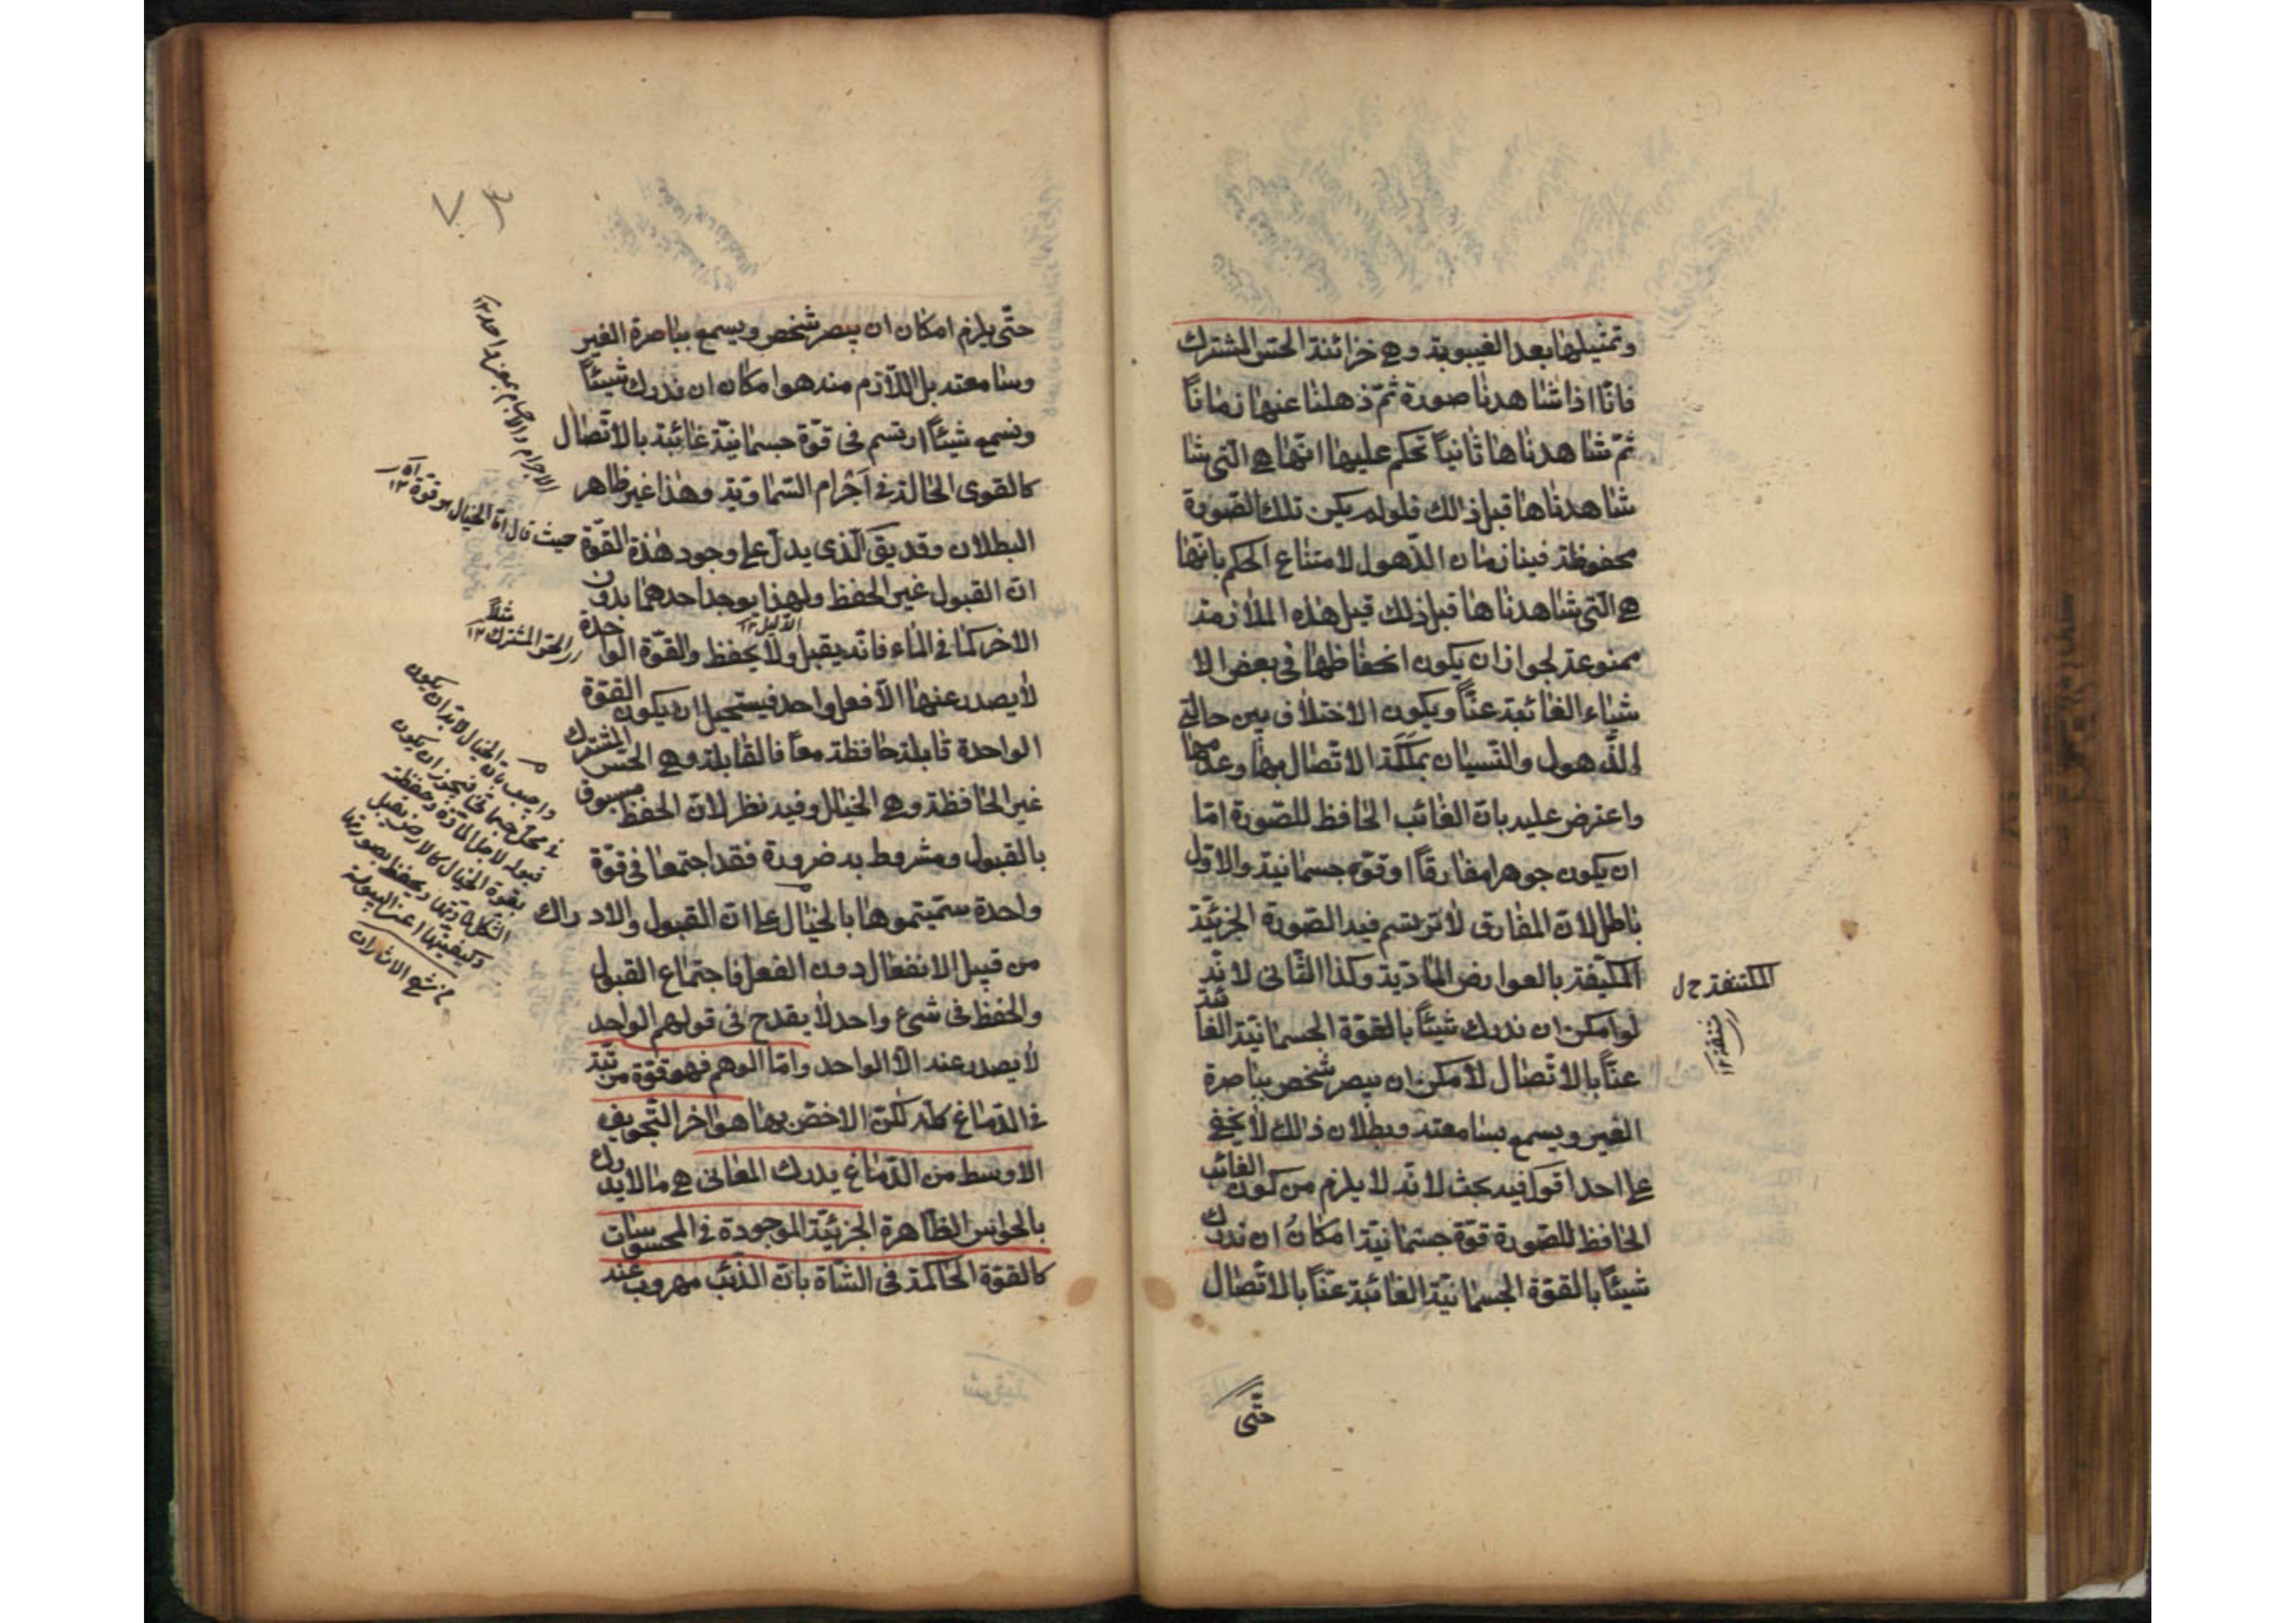 وتمثيلها بعد الغيبوبة وهي خزانة الحسّ المشترك
فانّا اذا شاهدنا صورة ثمّ ذهلنا عنها زمانًا
ثمّ شاهدناها ثانيًا نحكم عليها انّها هي الّتي شا
شاهدناها قبل ذالك فلو لم يكن تلك الصّورة
محفوظة فينا زمان الذّهول لامتناع الحكم بانّها
هي الّتي شاهدناها قبل ذلك قيل هذه الملازمة
ممنوعة لجواز ان يكون انحفاظها في بعض الا
شياء الغائبة عنّا ويكون الاختلاف بين حالتي
الذّهول والنّسيان بملكة الاتّصال بها وعدمها
واعترض عليه بانّ الغائب الحافظ للصّورة امّا
ان يكون جوهرا مفارقًا او قوّة جسمانية والاوّل
باطل لانّ المفارق لا ترتسم فيه الصّورة الجزئيّة
المكيّفة بالعوارض المادّية وكذا الثّاني لانّه
لو امكن ان ندرك شيئًا بالقوّة الجسمانيّة الغائبة
عنّا بالاتّصال لامكن ان يبصر شخص بباصرة
الغير ويسمع بسامعته وبطلان ذالك لا يخفى
على احد اقول فيه بحث لانّه لا يلزم من كون الغائب
الحافظ للصّورة قوّة جسمانيّة امكان ان ندرك
شيئًا بالقوّة الجسمانيّة الغائبة عنّا بالاتّصال
حتّى
المكتنفة ح ل
٧٣
حتّى يلزم امكان ان يبصر شخص ويسمع بباصرة الغير
وسامعته بل اللّازم منه هو امكان ان ندرك شيئًا
ونسمع شيئًا ارتسم في قوّة جسمانيّة غائبة بالاتّصال
كالقوى الحالّة في اجرام السّماويّة وهذا غير ظاهر
البطلان وقد يق الّذي يدلّ على وجود هذه القوّة
انّ القبول غير الحفظ ولهذا يوجد احدهما بدون
الاخر كما في الماء فانّه يقبل ولا يحفظ والقوّة الواحدة
الدليل ١٢
لا يصدر عنها الّا فعل واحد فيستحيل ان يكون القوّة
الواحدة قابلة حافظة معًا فالقابلة وهي الحسّ المشترك
غير الحافظة وهي الخيال وفيه نظر لانّ الحفظ مسبوق
بالقبول ومشروط به ضرورة فقد اجتمعا في قوّة
واحدة سمّيتموها بالخيال على انّ القبول والادراك
من قبيل الانفعال دون الفعل فاجتماع القبول
والحفظ في شيء واحد لا يقدح في قولهم الواحد
لا يصدر عنه الّا الواحد وامّا الوهم فهو قوّة مرتّبة
في الدّماغ كلّه لكنّ الاخصّ بها هو اخر التّجويف
الاوسط من الدّماغ يدرك المعاني هي ما لا يدرك
بالحواسّ الظّاهرة الجزئيّة الموجودة في المحسوسات
كالقوّة الحاكمة في الشّاة بانّ الذّئب مهروب عنه
حيث قال امّا الخيال هو قوّة اه ١٢
مثلاً
الحسّ المشترك ١٢
واجيب بانّ الخيال لابدّ ان يكون
في محلّ جسماني فيجوز ان يكون
قبوله لاجل المادّة وحفظه
بقوة الخيال كالارض يقبل
الشكل بمادّتها ويحفظ بصورتها
وكيفيتها اعني اليبوسة